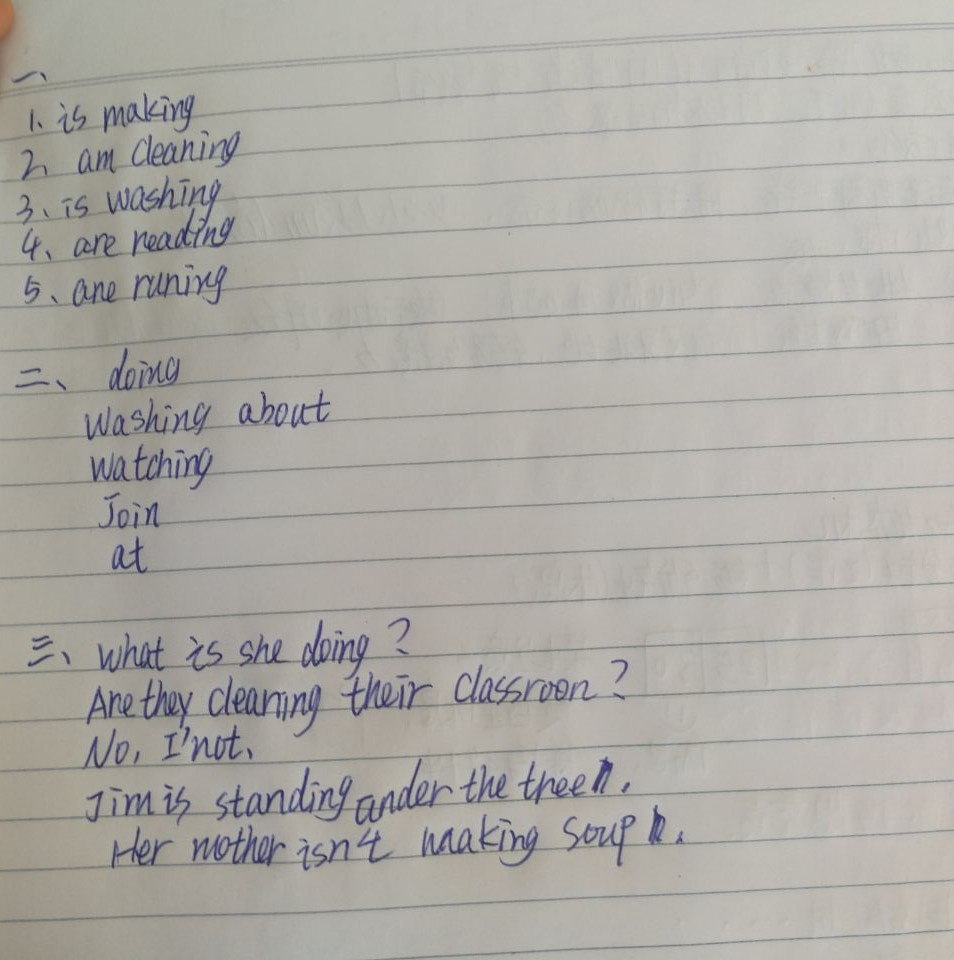 一、
1、is making
2、am cleaning
3、is washing
4、are reading
5、are runing
二、doing
washing about
watching
Join
at
三、what is she doing?
Are they cleaning their classroon?
No, I'not.
Jim is standing under the tree.
Her mother isn't making soup.